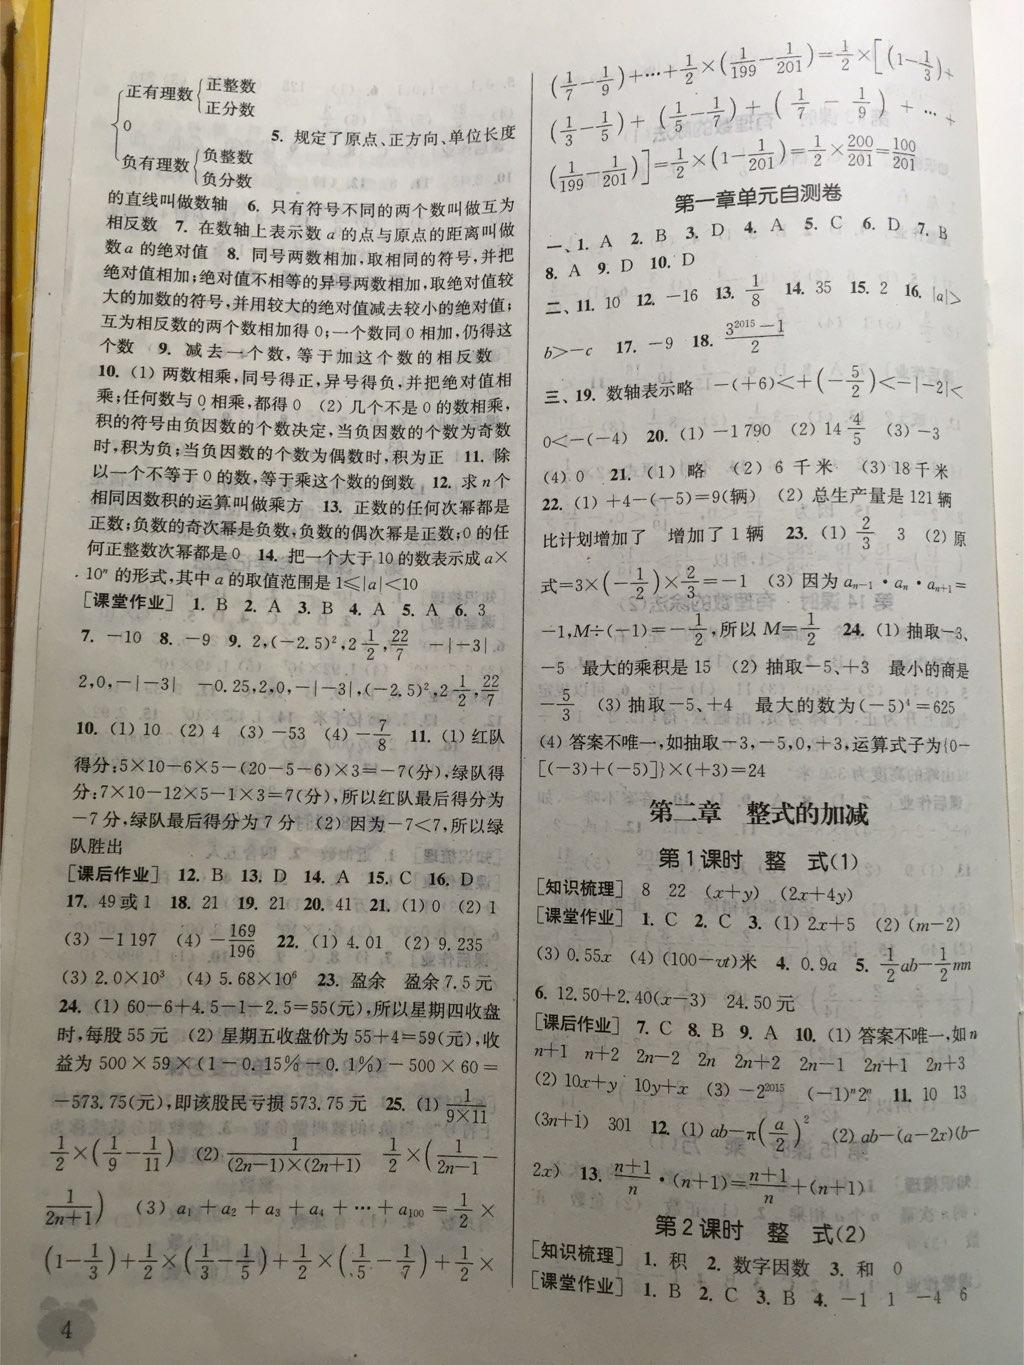 正有理数{正整数
正分数
0
负有理数{负整数
负分数
5. 规定了原点、正方向、单位长度
的直线叫做数轴 6. 只有符号不同的两个数叫做互为
相反数 7. 在数轴上表示数 a 的点与原点的距离叫做
数 a 的绝对值 8. 同号两数相加,取相同的符号,并把
绝对值相加;绝对值不相等的异号两数相加,取绝对值较
大的加数的符号,并用较大的绝对值减去较小的绝对值;
互为相反数的两个数相加得 0;一个数同 0 相加,仍得这
个数 9. 减去一个数,等于加这个数的相反数
10. (1) 两数相乘,同号得正,异号得负,并把绝对值相
乘;任何数与 0 相乘,都得 0 (2) 几个不是 0 的数相乘,
积的符号由负因数的个数决定,当负因数的个数为奇数
时,积为负;当负因数的个数为偶数时,积为正 11. 除
以一个不等于 0 的数,等于乘这个数的倒数 12. 求 n 个
相同因数积的运算叫做乘方 13. 正数的任何次幂都是
正数;负数的奇次幂是负数,负数的偶次幂是正数;0 的任
何正整数次幂都是 0 14. 把一个大于 10 的数表示成 a×
10ⁿ 的形式,其中 a 的取值范围是 1≤|a|<10
[课堂作业] 1. B 2. A 3. B 4. A 5. A 6. 3
7. −10 8. −9 9. 2,(−2.5)²,2 1/2,22/7 −|−3|
2,0,−|−3| −0.25,2,0,−|−3|,(−2.5)²,2 1/2,22/7
10. (1) 10 (2) 4 (3) −53 (4) −7/8 11. (1) 红队
得分:5×10−6×5−(20−5−6)×3=−7(分),绿队得
分:7×10−12×5−1×3=7(分),所以红队最后得分为
−7 分,绿队最后得分为 7 分 (2) 因为−7<7,所以绿
队胜出
[课后作业] 12. B 13. D 14. A 15. C 16. D
17. 49 或 1 18. 21 19. 21 20. 41 21. (1) 0 (2) 1
(3) −1 197 (4) −169/196 22. (1) 4.01 (2) 9.235
(3) 2.0×10³ (4) 5.68×10⁶ 23. 盈余 盈余 7.5 元
24. (1) 60−6+4.5−1−2.5=55(元),所以星期四收盘
时,每股 55 元 (2) 星期五收盘价为 55+4=59(元),收
益为 500×59×(1−0.15%−0.1%)−500×60=
−573.75(元),即该股民亏损 573.75 元 25. (1) 1/(9×11)
1/2×(1/9−1/11) (2) 1/((2n−1)×(2n+1)) 1/2×(1/(2n−1)−
1/(2n+1)) (3) a₁+a₂+a₃+a₄+⋯+a₁₀₀=1/2×
(1−1/3)+1/2×(1/3−1/5)+1/2×(1/5−1/7)+1/2×
4
(1/7−1/9)+⋯+1/2×(1/199−1/201)=1/2×[(1−1/3)+
(1/3−1/5)+(1/5−1/7)+(1/7−1/9)+⋯+
(1/199−1/201)]=1/2×(1−1/201)=1/2×200/201=100/201
第一章单元自测卷
一、1. A 2. B 3. D 4. A 5. C 6. D 7. B
8. A 9. D 10. D
二、11. 10 12. −16 13. 1/8 14. 35 15. 2 16. |a|>
b>−c 17. −9 18. (3²⁰¹⁵−1)/2
三、19. 数轴表示略 −(+6)<+(−5/2)<−|−2|<
0<−(−4) 20. (1) −1 790 (2) 14 4/5 (3) −3
(4) 0 21. (1) 略 (2) 6 千米 (3) 18 千米
22. (1) +4−(−5)=9(辆) (2) 总生产量是 121 辆
比计划增加了 增加了 1 辆 23. (1) 2/3 3 (2) 原
式=3×(−1/2)×2/3=−1 (3) 因为 aₙ₋₁·aₙ·aₙ₊₁=
−1,M÷(−1)=−1/2,所以 M=1/2 24. (1) 抽取−3、
−5 最大的乘积是 15 (2) 抽取−5、+3 最小的商是
−5/3 (3) 抽取−5、+4 最大的数为(−5)⁴=625
(4) 答案不唯一,如抽取−3,−5,0,+3,运算式子为{0−
[(−3)+(−5)]}×(+3)=24
第二章 整式的加减
第1课时 整 式(1)
[知识梳理] 8 22 (x+y) (2x+4y)
[课堂作业] 1. C 2. C 3. (1) 2x+5 (2) (m−2)
(3) 0.55x (4) (100−vt)米 4. 0.9a 5. 1/2ab−1/2mn
6. 12.50+2.40(x−3) 24.50 元
[课后作业] 7. C 8. B 9. A 10. (1) 答案不唯一,如 n
n+1 n+2 2n−2 2n 2n+2 2n−1 2n+1 2n+3
(2) 10x+y 10y+x (3) −2²⁰¹⁵ (−1)ⁿ2ⁿ 11. 10 13
(3n+1) 301 12. (1) ab−π(a/2)² (2) ab−(a−2x)(b−
2x) 13. (n+1)/n·(n+1)=(n+1)/n+(n+1)
第2课时 整 式(2)
[知识梳理] 1. 积 2. 数字因数 3. 和 0
[课堂作业] 1. B 2. C 3. B 4. −1 1 −4 6